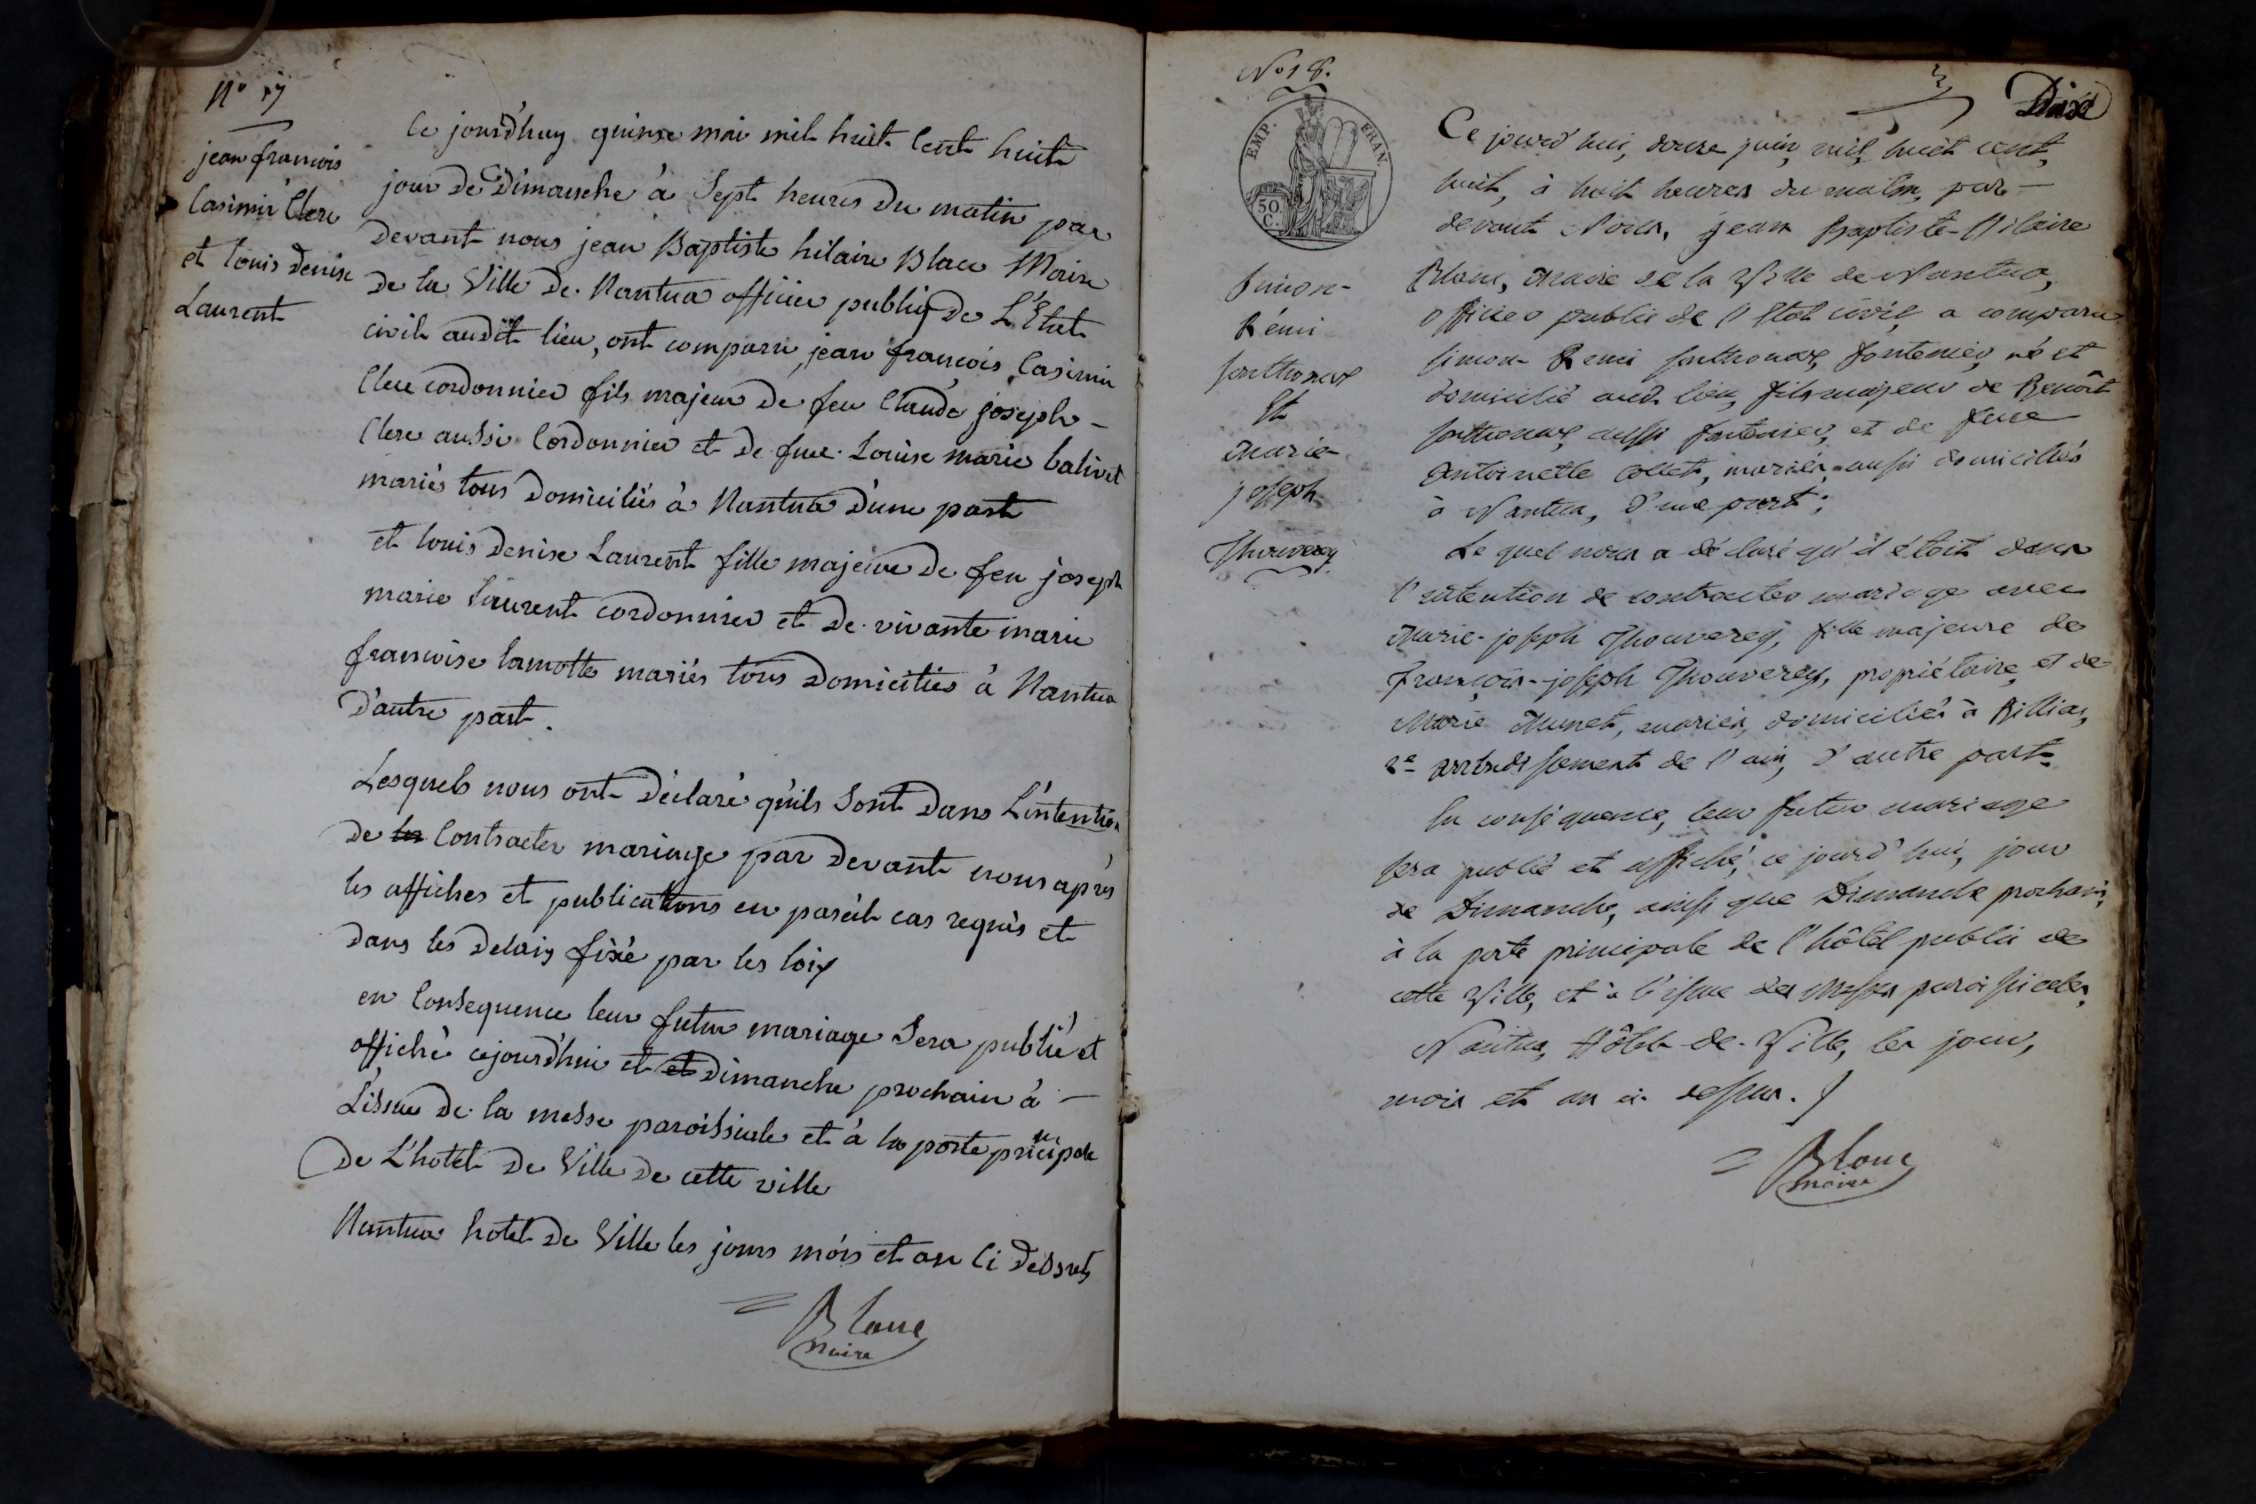 N° 17
jean francois
Casimir Clerc
et louis denise
Laurent
Ce jourd'huy quinze mai mil huit Cent huit
jour de Dimanche à Sept heures du matin par
devant nous jean Baptiste hilaire Blanc Maire
de la Ville de Nantua officier public de L'Etat
civil audit lieu, ont comparu, jean francois Casimir
Clerc cordonnier fils majeur de feu Claude joseph -
Clerc aussi Cordonnier et de feue Louise marie balivet
mariés tous domiciliés à Nantua d'une part
et louis denise Laurent fille majeure de feu joseph
marie Laurent cordonnier et de vivante marie
francoise lamotte mariés tous domiciliés à Nantua
d'autre part.
Lesquels nous ont déclaré quils sont dans L'intention
de Contracter mariage par devant nous après
les affiches et publications en pareil cas requis et
dans les delais fixé par les loix
en Consequence leur futur mariage Sera publié et
affiché cejourd'hui et et dimanche prochain à -
L'issue de la messe paroissiale et à la porte principale
de L'hotel de Ville de cette ville
Nantua hotel de Ville les jours mois et an Ci dessus
Blanc
maire
N° 18.
EMP. FRAN.
50 C.
Simon-
Rémi
Sonthonax
Et
Marie-
joseph
Thouverey
Ce jourd'hui, douze juin, mil huit cent
huit, à huit heures du matin, par-
devant Nous, jean Baptiste-Hilaire
Blanc, Maire de la Ville de Nantua,
officier public de l'Etat civil, a comparu
Simon Remi Sonthonax, , né et
domicilié aud. lieu, fils majeur de Benoît
Sonthonax, aussi , et de feue
Antoinette Collet, mariés, aussi domiciliés
à Nantua, d'une part;
Le quel nous a déclaré qu'il étoit dans
l'intention de contracter mariage avec
Marie-joseph Thouverey, fille majeure de
François-joseph Thouverey, propriétaire, et de
Marie Munet, mariés, domiciliés à Billiat,
2e arrondissement de l'ain, d'autre part.
En conséquence, leur futur mariage
sera publié et affiché, ce jourd'hui, jour
de Dimanche, ainsi que Dimanche prochain,
à la porte principale de l'hôtel public de
cette Ville, et à l'issue des Messes paroissiales.
Nantua, Hôtel-de-Ville, les jour,
mois et an ci-dessus.
Blanc
maire